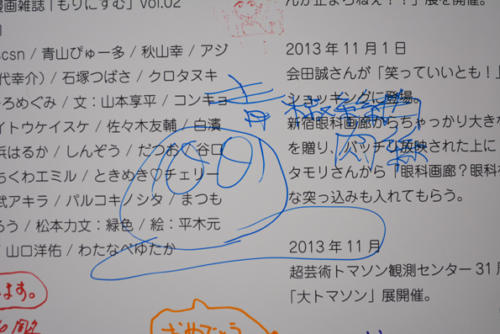 漫画雑誌「もりにすむ」vol.02
scsn / 青山ぴゅー多 / 秋山幸 / アジ
代幸介) / 石塚つばさ / クロタヌキ
ろめぐみ / 文:山本享平 / コンキョ
イトウケイスケ / 佐々木友輔 / 白濱
浜はるか / しんぞう / だつお / 谷口
ちくわエミル / ときめき♡チェリー
武アキラ / パルコキノシタ / まつも
ろう / 松本力文:緑色 / 絵:平木元
/ 山口洋佑 / わたなべゆたか
ます。
おめでとう
んか止まらねぇ!!」展を開催。
2013年11月1日
会田誠さんが「笑っていいとも!」
ショッキングに登場。
新宿眼科画廊からちゃっかり大きな
を贈り、バッチり放映された上に
タモリさんから「眼科画廊?眼科
な突っ込みも入れてもらう。
2013年11月
超芸術トマソン観測センター31
「大トマソン」展開催。